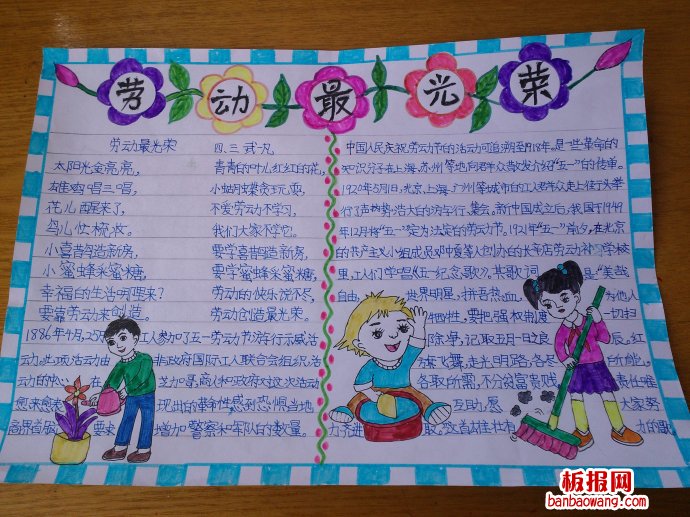 劳动最光荣
劳动最光荣 四、三 武凡
太阳光金亮亮，
雄鸡唱三唱，
花儿醒来了，
鸟儿忙梳妆。
小喜鹊造新房，
小蜜蜂采蜜糖，
幸福的生活哪里来？
要靠劳动来创造。
青青的叶儿红红的花，
小蝴蝶贪玩耍，
不爱劳动不学习，
我们大家不学它。
要学喜鹊造新房，
要学蜜蜂采蜜糖，
劳动的快乐说不尽，
劳动创造最光荣。
1886年4月，25 工人参加了五一劳动节游行示威活
动。此项活动由 非政府国际工人联合会组织。活
动的中心 芝加哥。商人和政府对这次活动
愈来愈 现出的革命性感到恐惧。当地
商界首 要求 增加警察和军队的数量。
中国人民庆祝劳动节的活动可追溯至1918年，是一些革命的
知识分子在上海、苏州等地向群众散发介绍“五一”的传单。
1920年5月1日，北京、上海、广州等城市的工人群众走上街头举
行了声势浩大的游行、集会。新中国成立后，我国于1949
年12月将“五一”定为法定的劳动节。1921年“五一”前夕，在北京
的共产主义小组成员邓中夏等人创办的长辛店劳动补习学校
里，工人们学唱《五一纪念歌》。其歌词 是：“美哉
自由， 世界明星，拼吾热血， 为他人
牺牲，要把强权制度 一切扫
除净，记取五月一日之良 辰。红
旗飞舞，走光明路，各尽 所能，
各取所需，不分贫富贵贱 责任唯
互助，愿 大家努
力齐进取。 力的歌
板报网
banbaowang.com